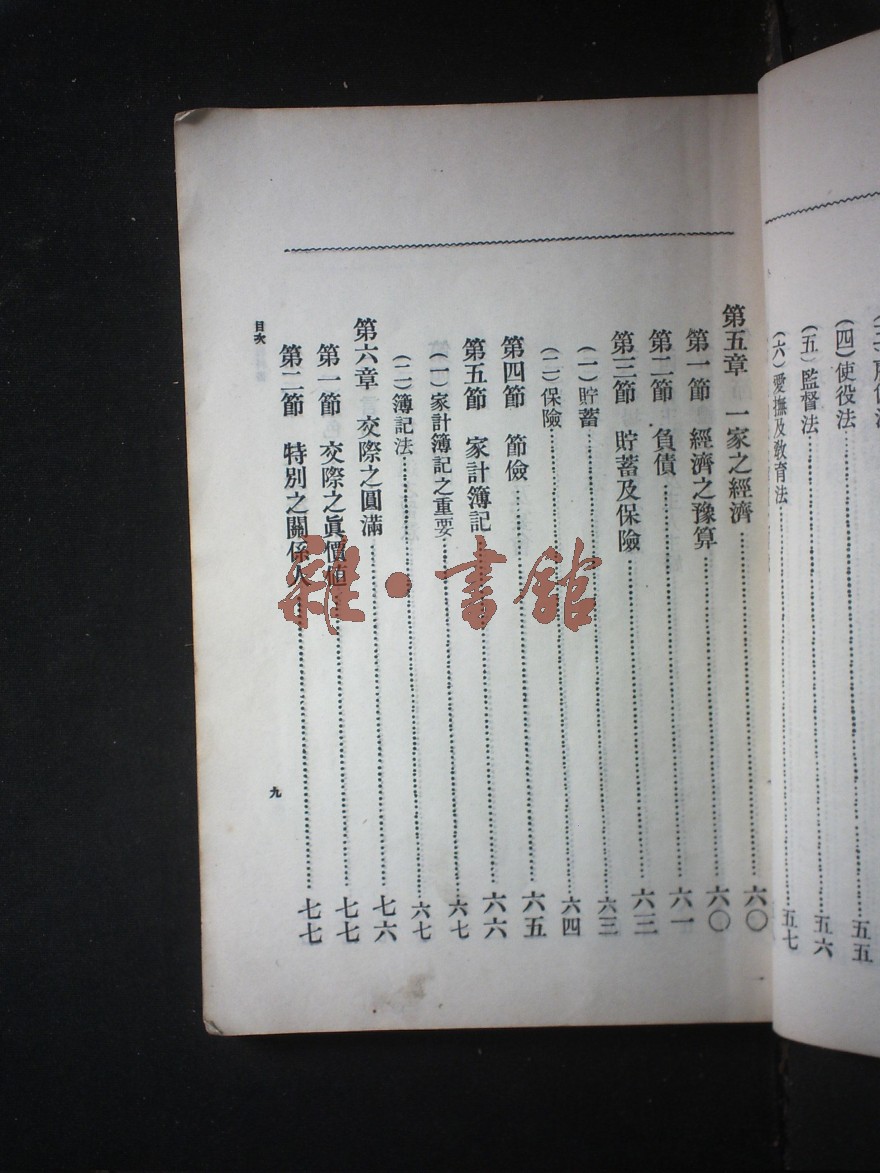 (四)使役法……五五
(五)監督法……五六
(六)愛撫及教育法……五七
第五章 一家之經濟……六〇
第一節 經濟之豫算……六〇
第二節 負債……六一
第三節 貯蓄及保險……六三
(一)貯蓄……六三
(二)保險……六四
第四節 節儉……六五
第五節 家計簿記……六六
(一)家計簿記之重要……六七
(二)簿記法……六七
第六章 交際之圓滿……七六
第一節 交際之眞價値……七七
第二節 特別之關係人……七七
目次
九
雜·書館